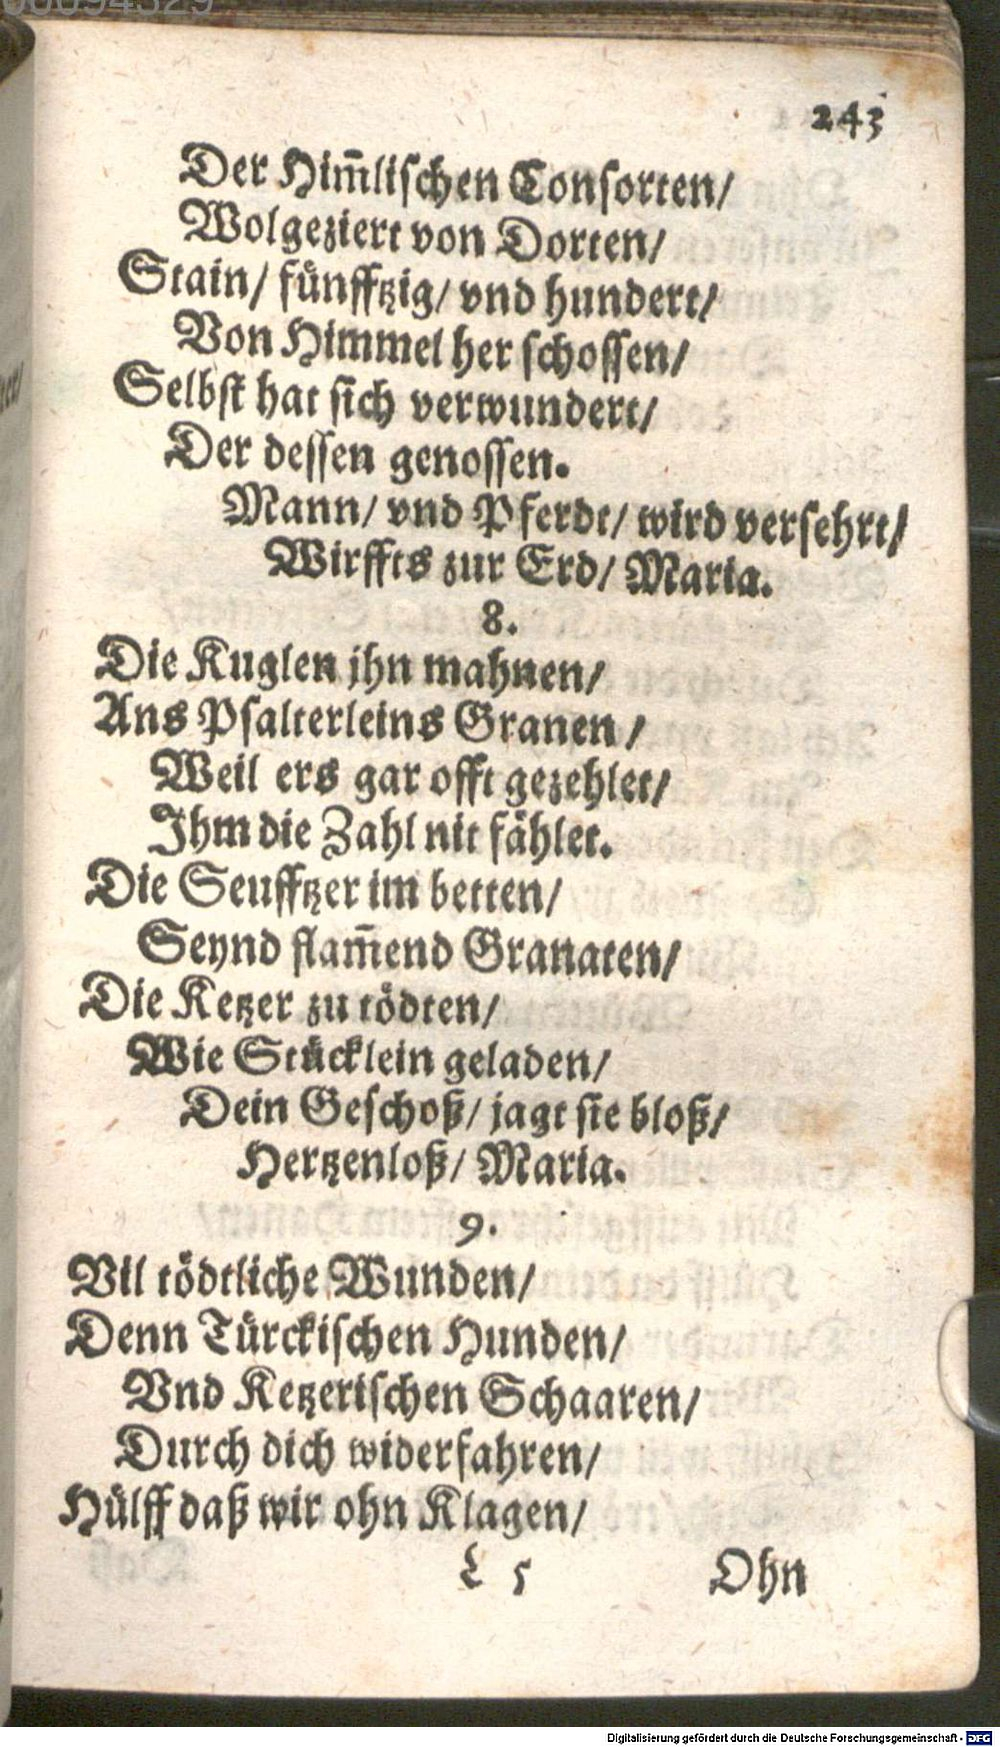 00094329
243
Der Him̃lischen Consorten/
Wolgeziert von Dorten/
Stain/ fünfftzig/ vnd hundert/
Von Himmel her schossen/
Selbst hat sich verwundert/
Der dessen genossen.
Mann/ vnd Pferdt/ wird versehrt/
Wirffts zur Erd/ Maria.
8.
Die Kuglen jhn mahnen/
Ans Psalterleins Granen/
Weil ers gar offt gezehlet/
Ihm die Zahl nit fählet.
Die Seufftzer im betten/
Seynd flam̃end Granaten/
Die Ketzer zu tödten/
Wie Stücklein geladen/
Dein Geschoß/ jagt sie bloß/
Hertzenloß/ Maria.
9.
Vil tödtliche Wunden/
Denn Türckischen Hunden/
Vnd Ketzerischen Schaaren/
Durch dich widerfahren/
Hülff daß wir ohn Klagen/
L 5 Ohn
Digitalisierung gefördert durch die Deutsche Forschungsgemeinschaft - DFG